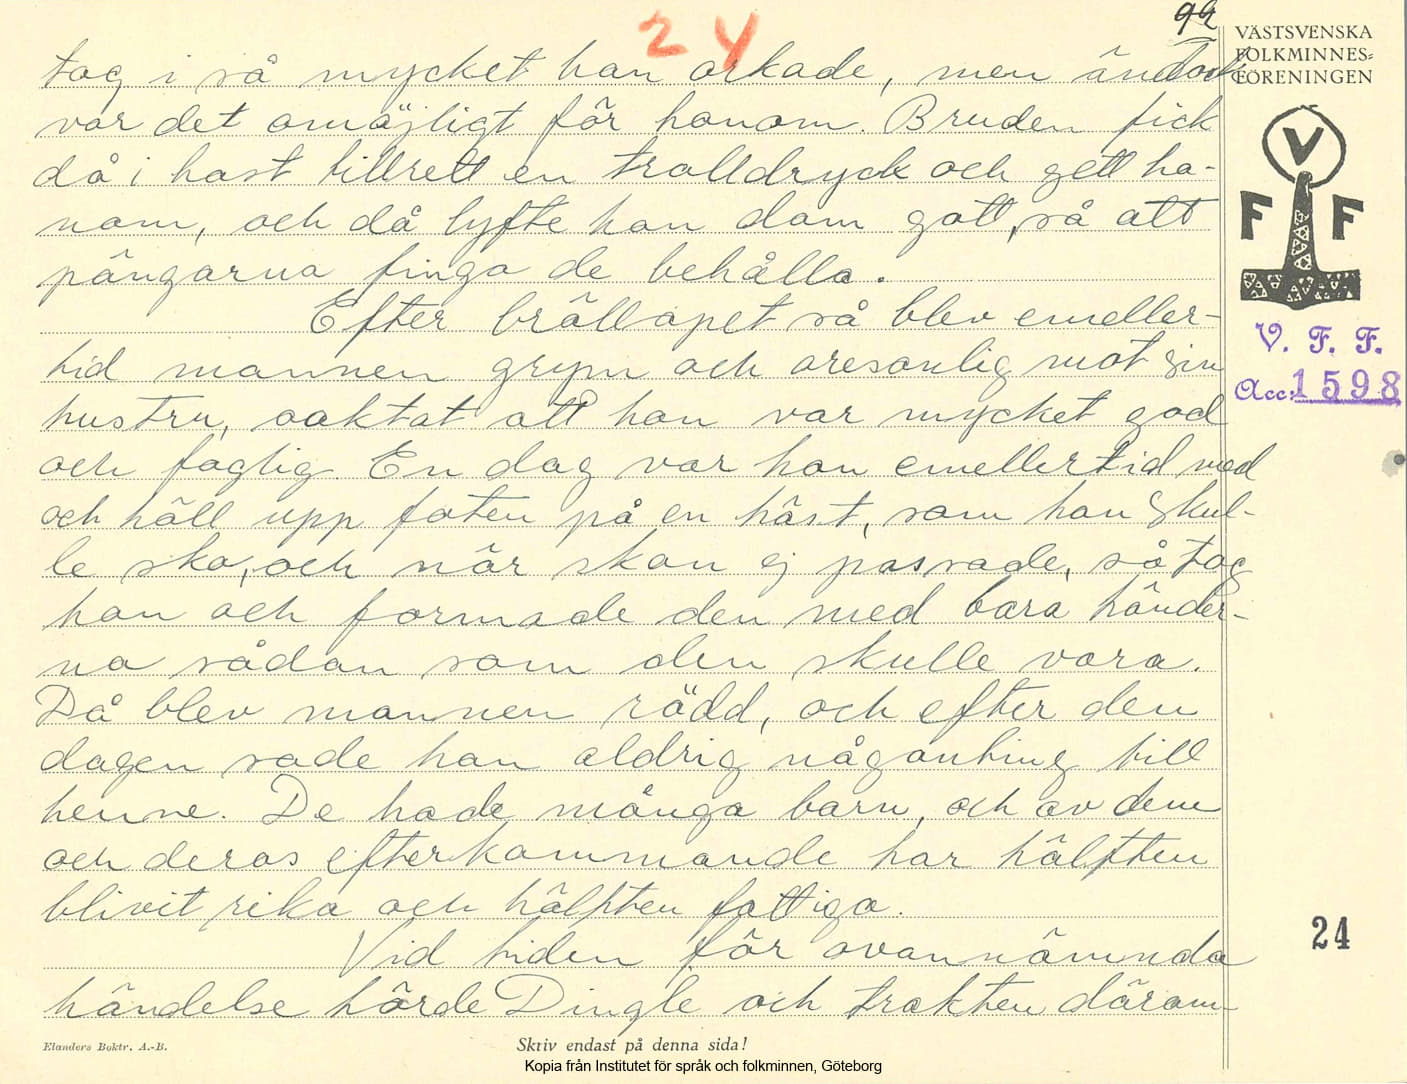 99
24
VÄSTSVENSKA
FOLKMINNES=
FÖRENINGEN
V
F F
V. F. F.
Acc: 1598
tog i så mycket han orkade, men ändock
var det omöjligt för honom. Bruden fick
då i hast tillrett en trolldryck och gett ho-
nom, och då lyfte han dom gott, så att
pängarna finga de behålla.
Efter bröllopet så blev emeller-
tid mannen grym och oresonlig mot sin
hustru, oaktat att hon var mycket god
och foglig En dag var hon emellertid med
och höll upp foten på en häst, som han skul-
le sko, och när skon ej passade, så tog
hon och formade den med bara händer-
na sådan som den skulle vara.
Då blev mannen rädd, och efter den
dagen sade han aldrig någonting till
henne. De hade många barn, och av dem
och deras efterkommande har hälften
blivit rika och hälften fattiga.
Vid tiden för ovannämnda
händelse hörde Dingle och trakten därom
24
Elanders Boktr. A.-B.
Skriv endast på denna sida!
Kopia från Institutet för språk och folkminnen, Göteborg